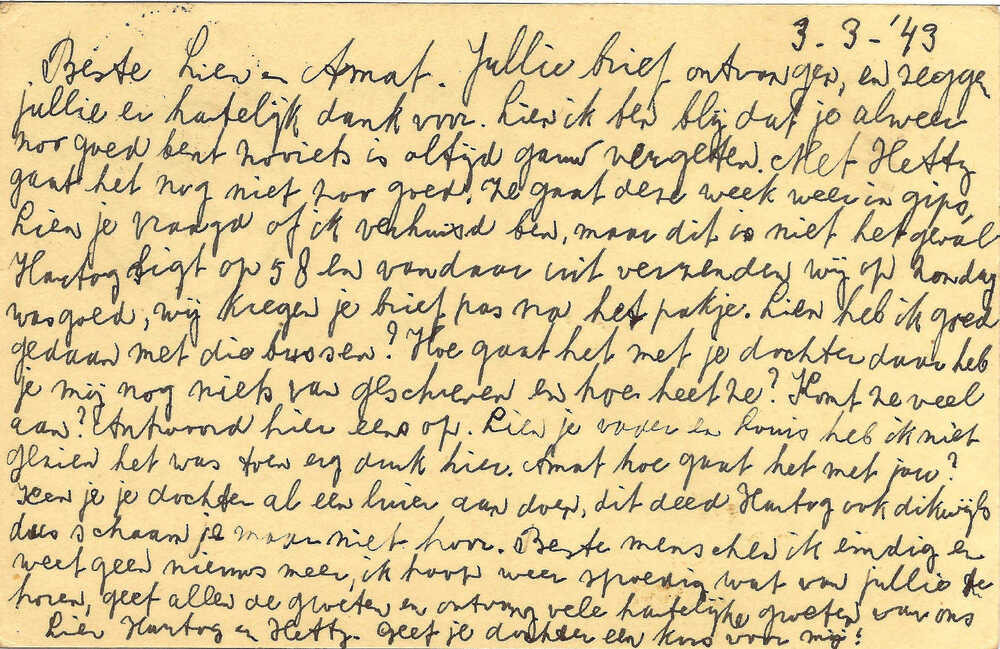 3-3-'43
Beste Lien en Amat. Jullie brief ontvangen, en zeggen
jullie er hartelijk dank voor. Lien ik ben blij dat je alweer
zoo goed bent zooiets is altijd gauw vergeten. Met Hetty
gaat het nog niet zoo goed. Ze gaat deze week weer in gips,
Lien je vraagd of ik verhuisd ben, maar dit is niet het geval
Hartog ligt op 58 en vandaar uit verzenden wij op zondag
wasgoed, wij kregen je brief pas na het pakje. Lien heb ik goed
gedaan met die bussen? Hoe gaat het met je dochter daar heb
je mij nog niets van geschreven en hoe heet ze? Komt ze veel
aan? Antwoord hier eens op. Lien je vader en Louis heb ik niet
gezien het was toen erg druk hier. Amat hoe gaat het met jou?
Ken je je dochter al een luier aan doen, dit deed Hartog ook dikwijls
dus schaam je maar niet hoor. Beste menschen ik eindig en
weet geen nieuws meer, ik hoop weer spoedig wat van jullie te
horen, geef allen de groeten en ontvang vele hartelijke groeten van ons
Lien Hartog en Hetty. Geef je dochter een kus voor mij!